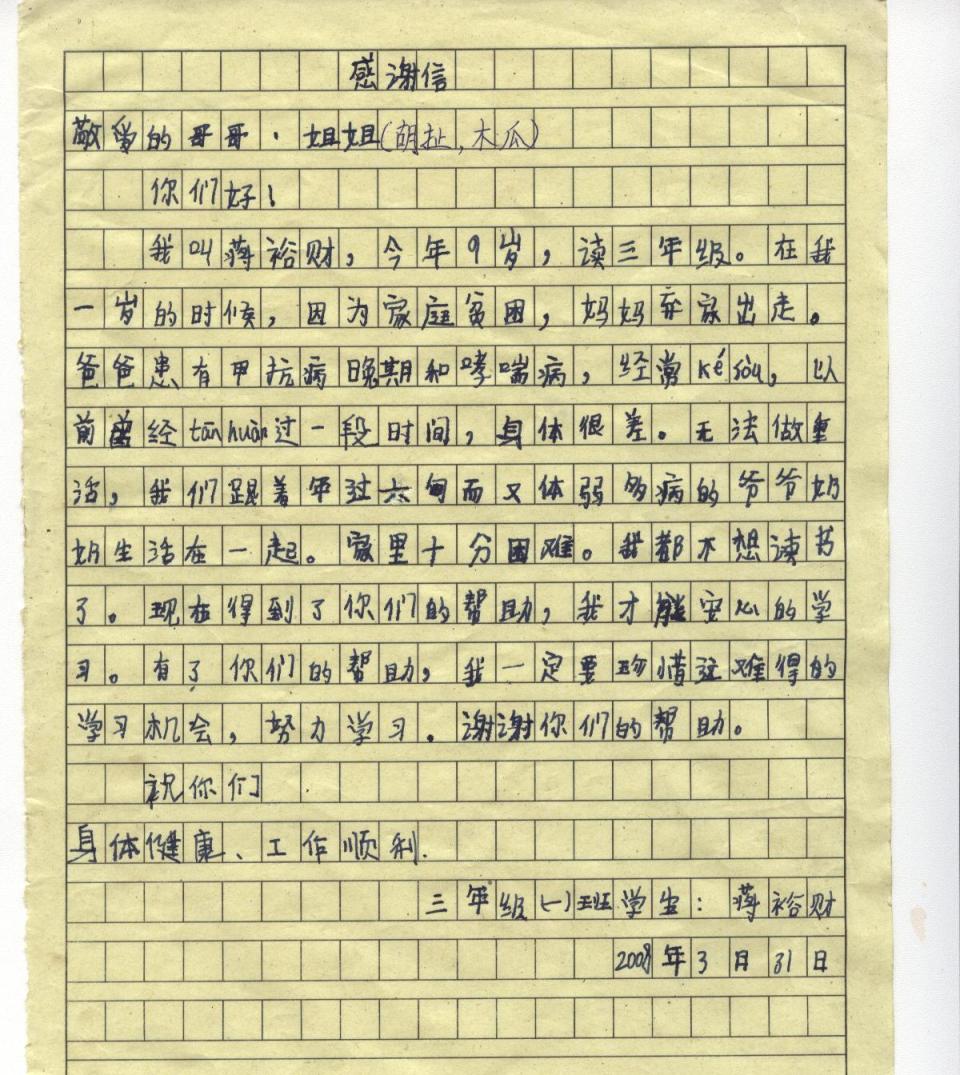 感谢信
敬爱的哥哥、姐姐(胡扯,木瓜)
你们好!
我叫蒋裕财,今年9岁,读三年级。在我
一岁的时候,因为家庭贫困,妈妈弃家出走。
爸爸患有甲抗病晚期和哮喘病,经常ké sòu,以
前曾经tān huàn过一段时间,身体很差。无法做重
活,我们跟着年过六旬而又体弱多病的爷爷奶
奶生活在一起。家里十分困难。我都不想读书
了。现在得到了你们的帮助,我才能安心的学
习。有了你们的帮助,我一定要珍惜这难得的
学习机会,努力学习.谢谢你们的帮助。
祝你们
身体健康、工作顺利.
三年级(一)班学生:蒋裕财
2008年3月31日